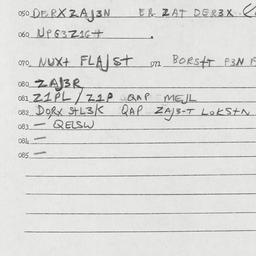 050 DERXZAJ3N ER ZAT DER3X
060 UPG3Z1G+ .
070 NUX+ FLAJS+ 071 BORSt+ P3N
080 ZAJ3R
081 Z1PL / Z1P QAP MEJL
082 DORX StL3K QAP ZAJ3-T LOKS+N
083 — QELSW
084 —
085 —